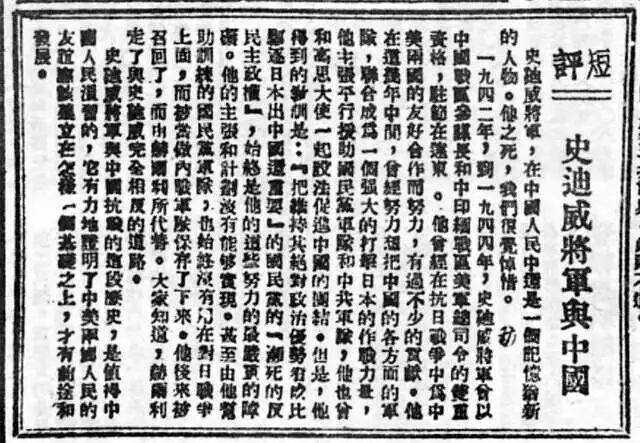 短評
史迪威將軍與中國
史迪威將軍,在中國人民中還是一個記憶猶新
的人物。他之死,我們很覺悼惜。
一九四二年,到一九四四年,史迪威將軍曾以
中國戰區參謀長和中印緬戰區美軍總司令的雙重
資格,駐節在遠東。他曾經在抗日戰爭中為中
美兩國的友好合作而努力,有過不少的貢獻。他
在這幾年中間,曾經努力想把中國的各方面的軍
隊,聯合成為一個强大的打擊日本的作戰力量,
他主張平行援助國民黨軍隊和中共軍隊,他也曾
和高思大使一起設法促進中國的團結。但是,他
得到的教訓是:『把維持其絕對政治優勢看成比
驅逐日本出中國還重要』的國民黨的『瀕死的反
民主政權』,始終是他的這些努力的最嚴重的障
礙。他的主張和計劃沒有能够實現。甚至由他幫
助訓練的國民黨軍隊,也始終沒有用在對日戰爭
上面,而被當做內戰軍隊保存了下來。他後來被
召回了,而由赫爾利所代替。大家知道,赫爾利
走了與史迪威完全相反的道路。
史迪威將軍與中國抗戰的這段歷史,是值得中
國人民溫習的,它有力地證明了中美兩國人民的
友誼應該建立在怎樣一個基礎之上,才有前途和
發展。